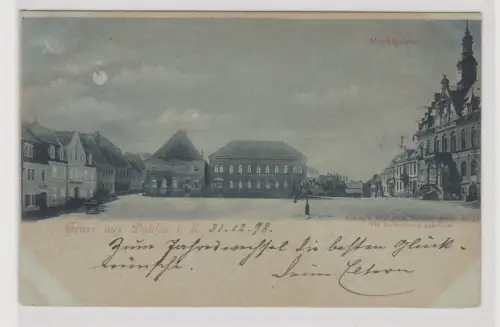 Marktplatz.
Gruss aus Dahlen i. S. 31.12.98.
Zum Jahreswechsel die besten Glück-
wünsche. Deine Eltern